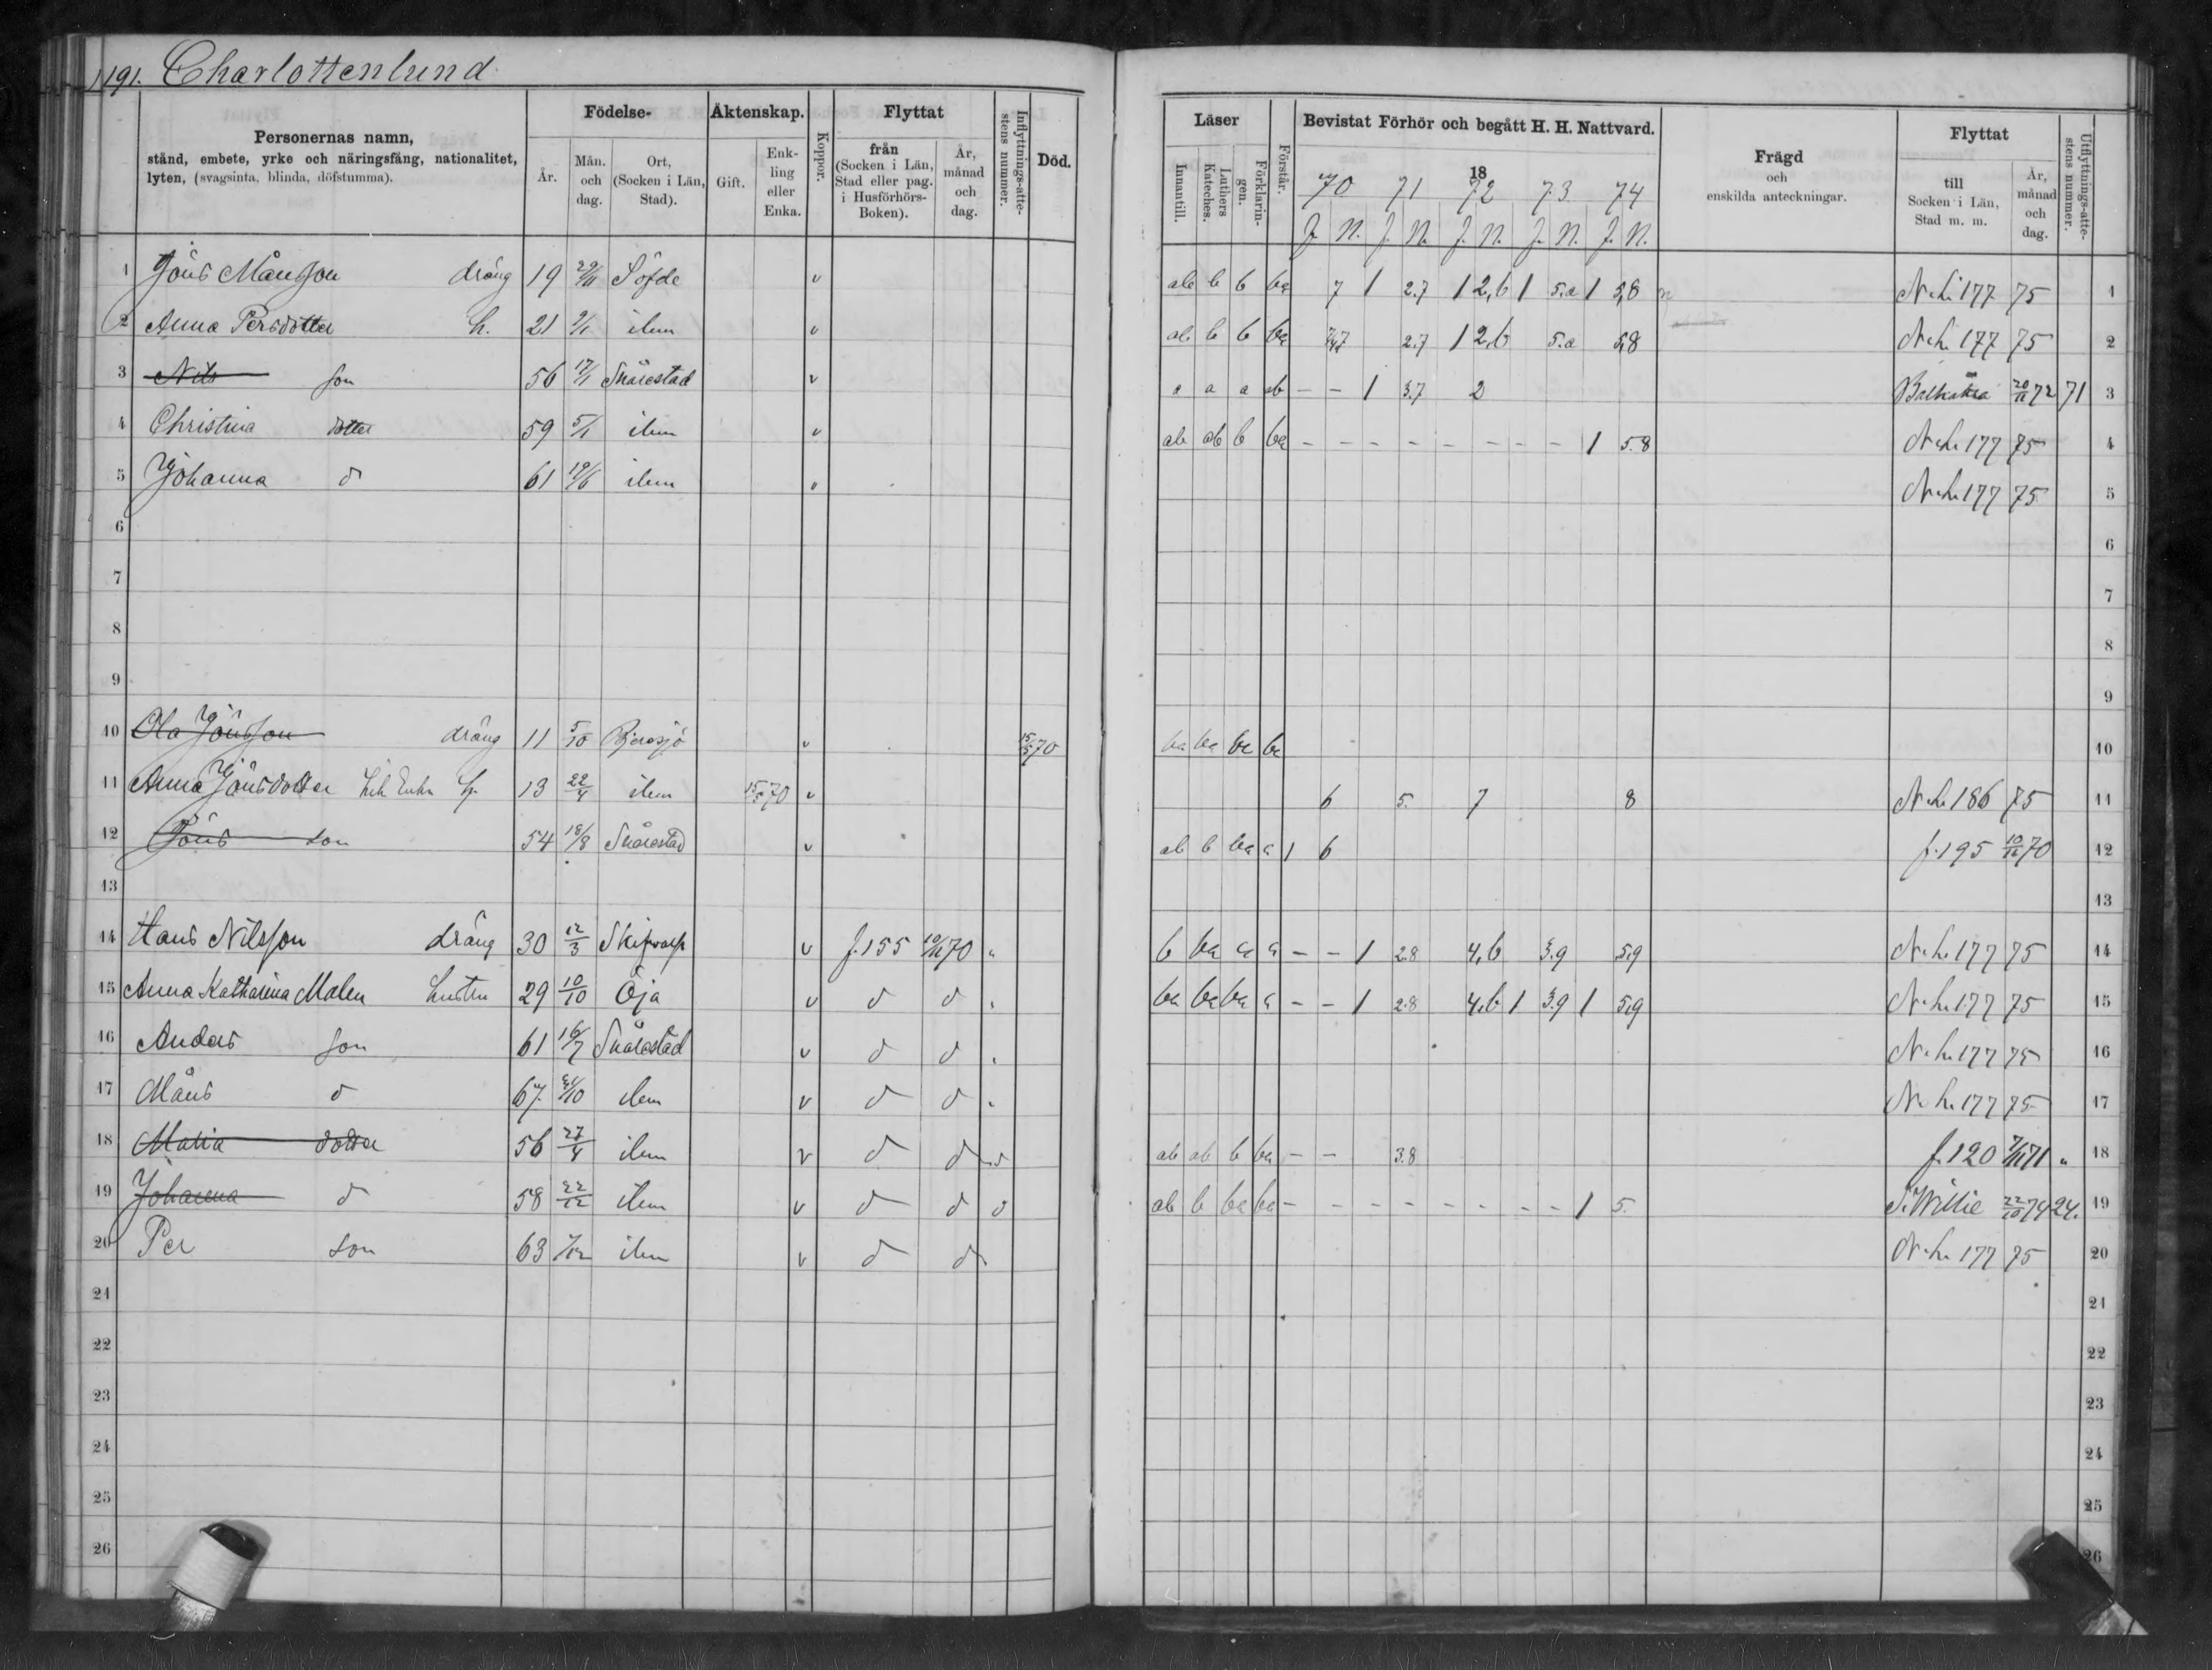 191. Charlottenlund
Personernas namn,
stånd, embete, yrke och näringsfång, nationalitet,
lyten, (svagsinta, blinda, döfstumma).
Födelse-
År.
Mån. och dag.
Ort, (Socken i Län, Stad).
Äktenskap.
Gift.
Enk-ling eller Enka.
Koppor.
Flyttat
från (Socken i Län, Stad eller pag. i Husförhörs-Boken).
År, månad och dag.
Inflyttnings-atte-stens nummer.
Död.
Läser
Innantill.
Luthers Kateches.
Förklarin-gen.
Förstår.
Bevistat Förhör och begått H. H. Nattvard.
18
70 71 72 73 74
F. N. F. N. F. N. F. N. F. N.
Frägd
och
enskilda anteckningar.
Flyttat
till Socken i Län, Stad m. m.
År, månad och dag.
Utflyttnings-atte-stens nummer.
1 Jöns Månsson dräng 19 29/11 Söfde v ab b b ba 7 1 2.7 1 2,6 1 5.a 1 5,8 N.L. 177 75 1
2 Anna Persdotter h. 21 idem v ab b b ba 2.7 1 2,6 5.a 5,8 N.L. 177 75 2
3 Nils son 56 17/1 Snårestad v a a a ab – – 1 3.7 2 20/11 72 71 3
4 Christina dotter 59 5/1 idem v ab ab b ba – – – – – – – – 1 5.8 N.L. 177 75 4
5 Johanna d 61 19/6 idem v N.L. 177 75 5
6 6
7 7
8 8
9 9
10 Ola Jönsson dräng 11 5/10 Bjeresjö v 15/5 70 ba ba ba ba 10
11 Anna Jönsdotter Enka 13 22/4 idem 15/5 70 v 6 5. 7 8 N.L. 186 75 11
12 Jöns son 54 18/8 Snårestad v ab b ba a 1 6 f. 195 10/11 70 12
13 13
14 Hans Nilsson dräng 30 12/3 Skifvarp v f. 155 10/11 70 „ b ba a a – – 1 2.8 4,6 3.9 5,9 N.L. 177 75 14
15 Anna Katharina Malen hustru 29 10/10 Öja v d d „ ba ba ba a – – 1 2.8 4,6 1 3.9 1 5,9 N.L. 177 75 15
16 Anders son 61 16/7 Snårestad v d d „ N.L. 177 75 16
17 Måns d 67 31/10 idem v d d „ N.L. 177 75 17
18 Maria dotter 56 27/4 idem v d d d ab ab b ba – – 3.8 f. 120 71 „ 18
19 Johanna d 58 22/12 idem v d d d ab b ba ba – – – – – – – – 1 5. S. Willie 22/10 74 24. 19
20 Per son 63 7/12 idem v d d N.L. 177 75 20
21 21
22 22
23 23
24 24
25 25
26 26